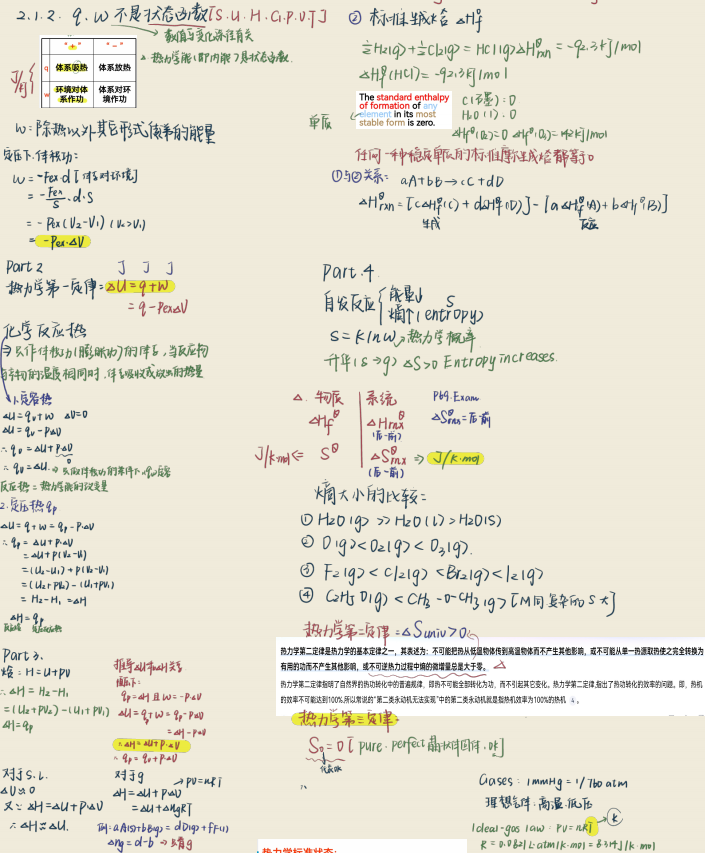 2.1.2. q.w 不是状态函数 [S.U.H.G.P.V.T]
→ 数值与变化途径有关
→ 热力学能(即内能)是状态函数.
J/用
"+" "-"
q 体系吸热 体系放热
w 环境对体系作功 体系对环境作功
W:除热以外其它形式传递的能量
定压下.体积功:
W = -Fex·d [体系对环境]
= -Fex/S · d·S
= -Pex(V2-V1) (V2>V1)
= -Pex·ΔV
Part 2 J J J
热力学第一定律:ΔU = q+W
= q - PexΔV
化学反应热
⇒ 只作体积功(膨胀功)的体系,当反应物
与产物的温度相同时,体系吸收或放出的热量
1.定容热
ΔU = qv+W ΔV=0
ΔU = qv - PΔV
∴ qv = ΔU+PΔV
0
∴ qv = ΔU.
反应热=热力学能的改变量
2.定压热qp
ΔU = q+W = qp - P·ΔV
∴ qp = ΔU+P·ΔV
= ΔU+P(V2-V1)
= (U2-U1)+P(V2-V1)
= (U2+PV2)-(U1+PV1)
= H2-H1 = ΔH
ΔH = qp
Part 3.
焓:H = U+PV
∴ ΔH = H2-H1
= (U2+PV2)-(U1+PV1)
ΔH = qp
推导ΔU和ΔH关系
恒压下:
qp = ΔH 且 W = -P·ΔV
ΔU = q+W = qp - P·ΔV
= ΔH - P·ΔV
∴ ΔH = ΔU+P·ΔV
∴ qp = qv+P·ΔV
对于S.L.
ΔV≈0
又∵ ΔH = ΔU+P·ΔV
∴ ΔH≈ΔU.
对于g
→ PV=nRT
ΔH = ΔU+P·ΔV
= ΔU+ΔngRT
例:aA(s)+bB(g) = dD(g)+fF(l)
Δng = d-b → 只看g
② 标准生成焓 ΔHf°
½H2(g)+½Cl2(g) = HCl(g) ΔH°rxn = -92.3kJ/mol
ΔHf°(HCl) = -92.3kJ/mol
The standard enthalpy
of formation of any
element in its most
stable form is zero.
单质
C(石墨):0
H2O(l):0
ΔHf°(O2)=0 ΔHf°(O3)=142kJ/mol
任何一种稳定单质的标准摩尔生成焓都等于0
①与②关系: aA+bB → cC+dD
ΔH°rxn = [cΔHf°(C)+dΔHf°(D)]-[aΔHf°(A)+bΔHf°(B)]
生成 反应
Part.4.
自发反应 能量↓ S
熵↑(entropy)
S = k ln w → 热力学概率
升华(s→g) ΔS>0 Entropy increases.
Δ. 物质 系统 P69.Exam
ΔHf° ΔH°rxn ΔS°rxn=后-前
(后-前)
J/k·mol ⇐ S° ΔS°rxn ⇒ J/k·mol
(后-前)
熵大小的比较:
① H2O(g) >> H2O(l) > H2O(s)
② O(g) < O2(g) < O3(g).
③ F2(g) < Cl2(g) < Br2(g) < I2(g)
④ C2H5O(g) < CH3-O-CH3(g) [M同复杂的S大]
热力学第二定律:ΔSuniv>0
热力学第二定律是热力学的基本定律之一,其表述为:不可能把热从低温物体传到高温物体而不产生其他影响,或不可能从单一热源取热使之完全转换为
有用的功而不产生其他影响,或不可逆热力过程中熵的微增量总是大于零。 Δ
热力学第二定律指明了自然界的热功转化中的普遍规律,即热不可能全部转化为功,而不引起其它变化。热力学第二定律,指出了热功转化的效率的问题。即,热机
的效率不可能达到100%,所以常说的"第二类永动机无法实现"中的第二类永动机就是指热机效率为100%的热机 4 。
热力学第三定律:
S0 = 0 [pure. perfect 晶状固体. 0k]
Gases: 1mmHg = 1/760 atm
理想气体:高温.低压
Ideal-gas law: PV = nRT → K
R = 0.0821 L·atm/k·mol = 8.314J/k·mol
热力学标准状态: